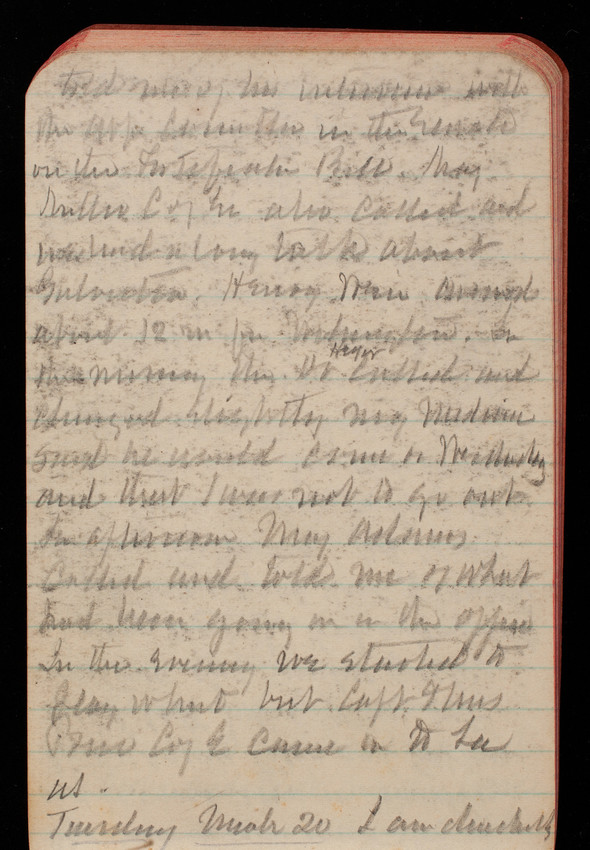 told me of his interview with
the App Committee in the Senate
on the Fortification Bill. Maj
Miller Coy also called and
we had a long talk about
Galveston. Henry Weir arrived
about 12 m for Washington. In
the morning the Dr Heger called and
changed slightly my Medicine
said he would come on Wednesday
and that I was not to go out.
In afternoon Maj Adams
Called and told me of what
had been going on in the office
In the evening we started to
play whist but Capt
Coy E came in to see
us.
Tuesday March 20 I am decidedly